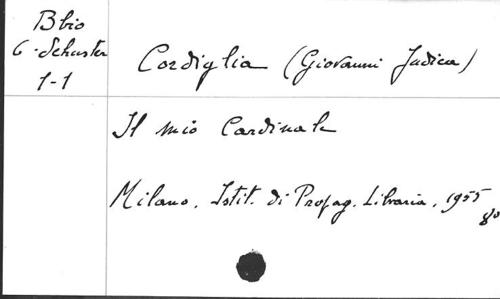 Bbio
G. Schuster
1-1
Cordiglia (Giovanni Judica)
Il mio Cardinale
Milano, Istit. di Propag. Libraria, 1955
8°